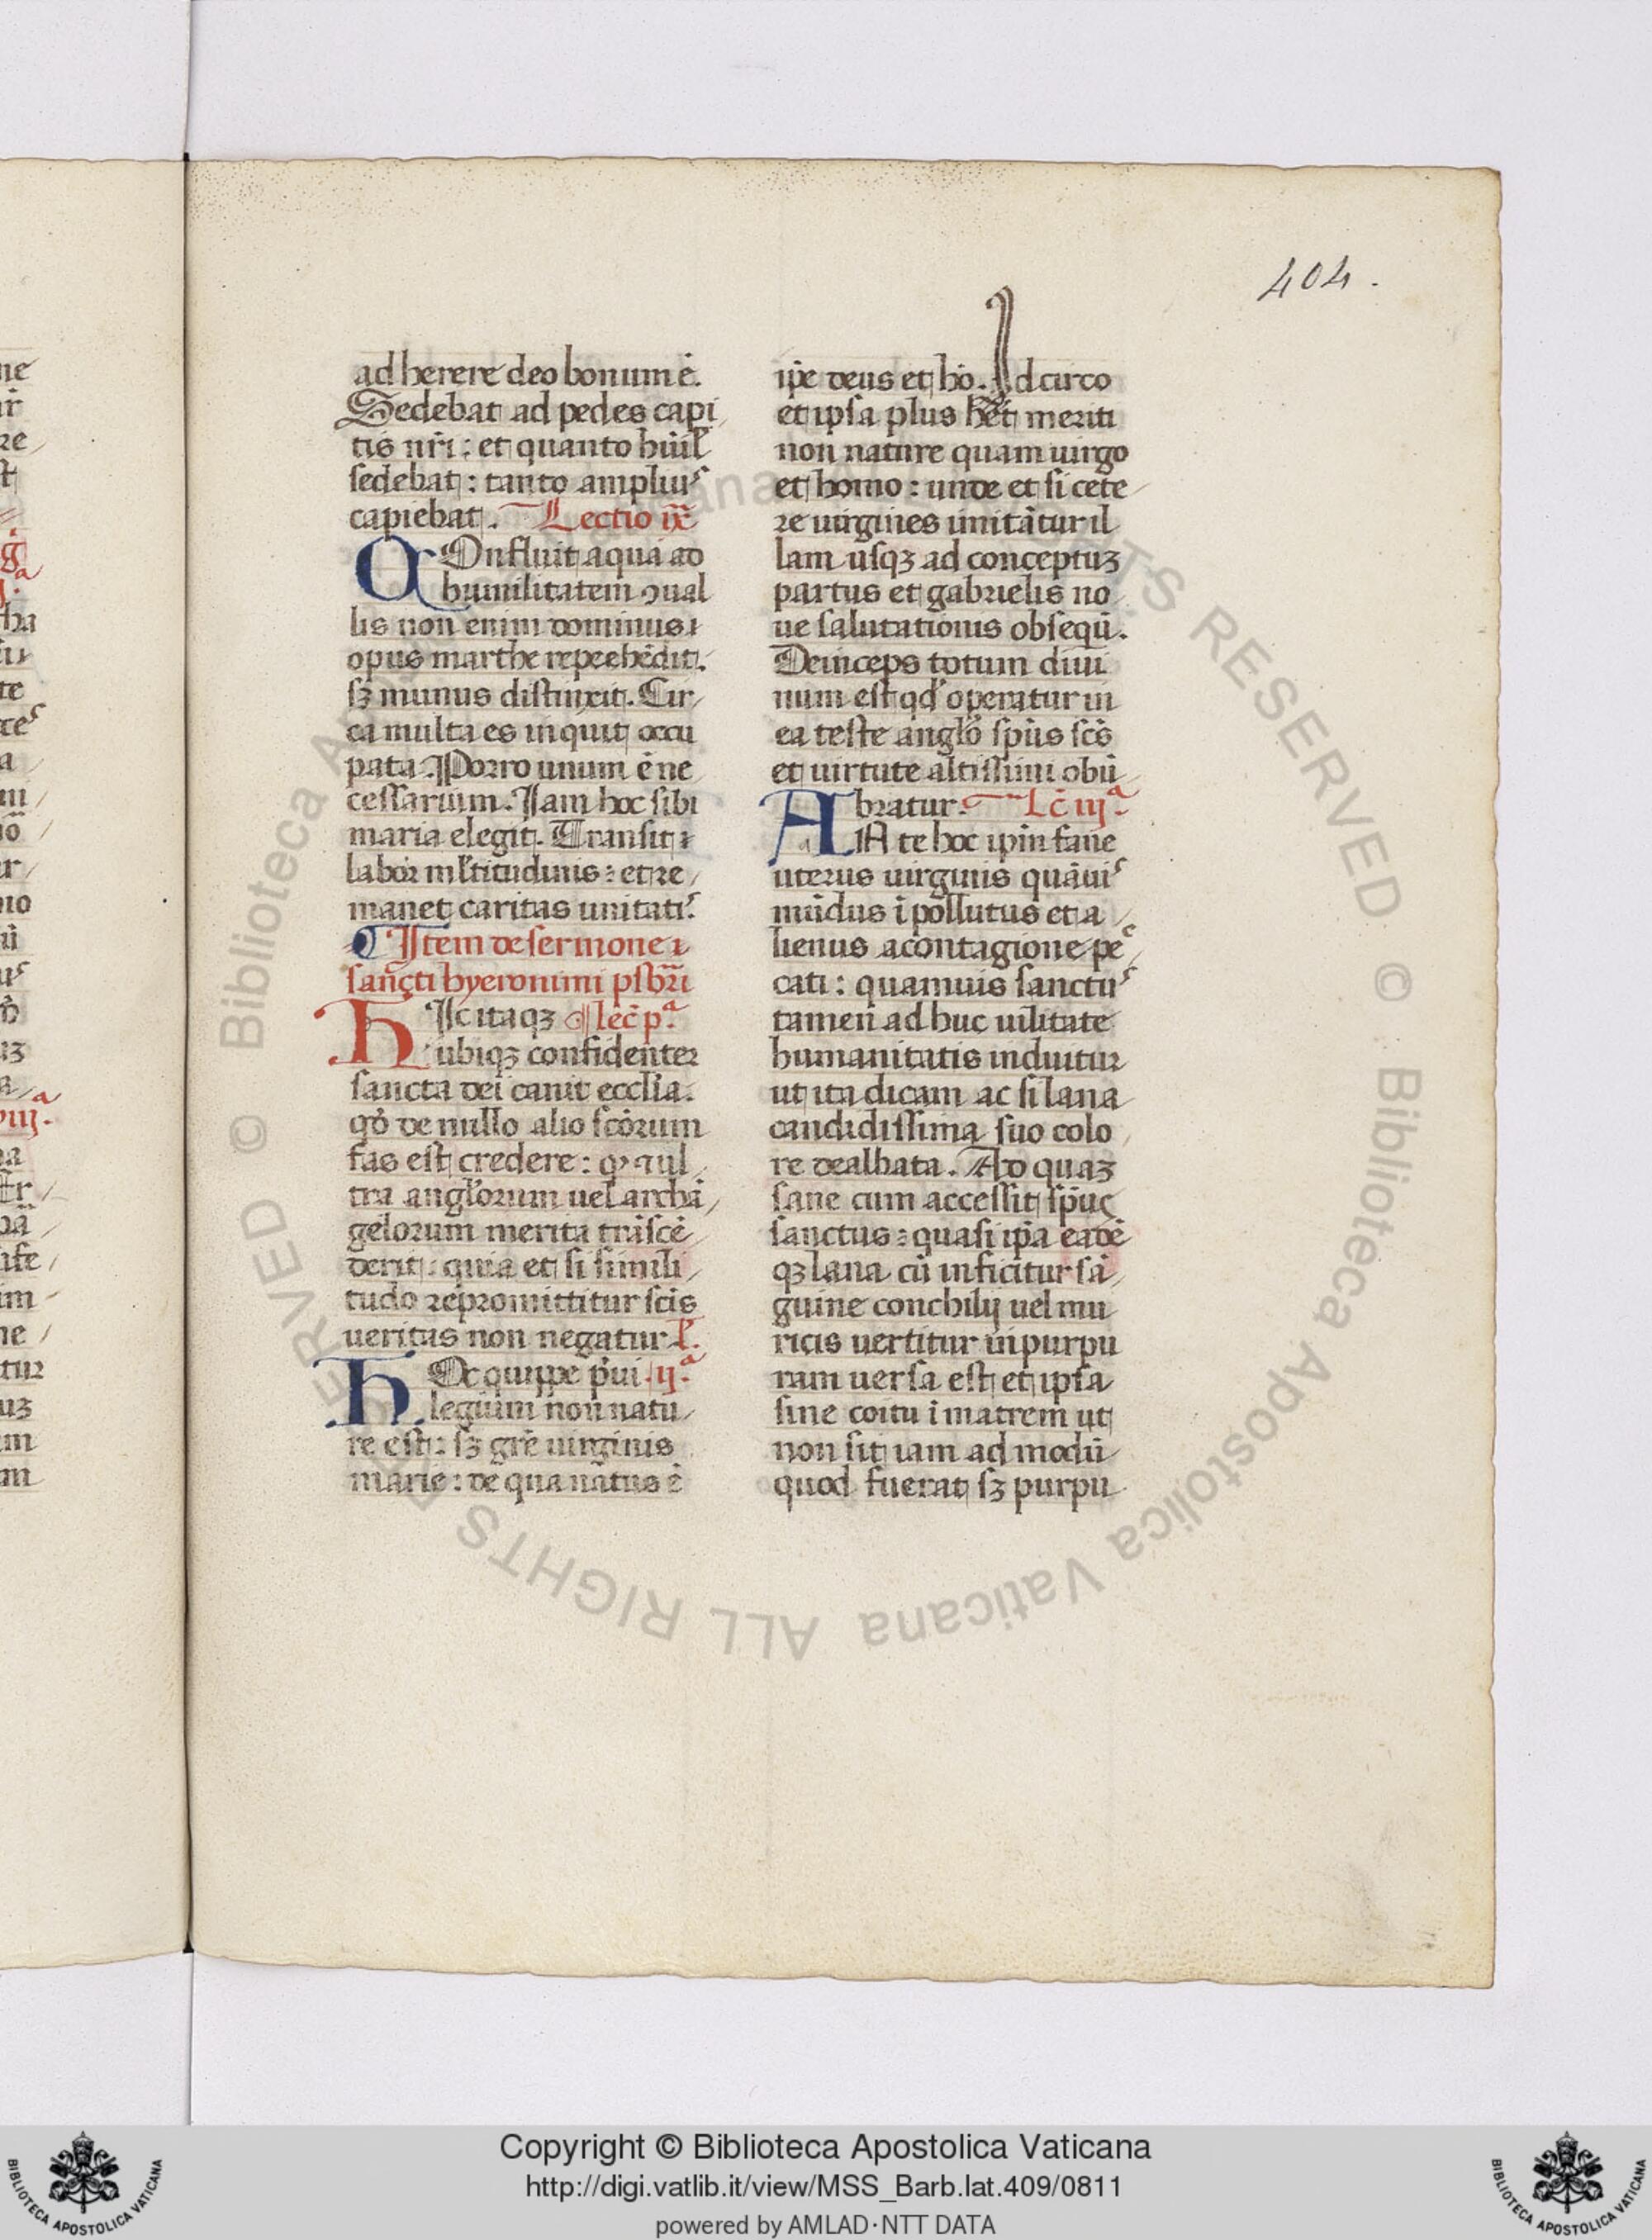 404.
ad herere deo bonum ē.
Sedebat ad pedes capi
tis nr̄i: et quanto hūil
sedebat: tanto ampliuˢ
capiebat. Lectio ix
COnfluit aqua ad
humilitatem ꝯual
lis non enim dominus
opus marthe repehēdit.
sꝫ munus distinxit. Cir
ca multa es inquit occu
pata. Porro unum ē ne
cessarium. Iam hoc sibi
maria elegit. Transit
labor ml̄titudinis: et re
manet caritas unitatiˢ.
Item de sermone
sancti hyeronimi psb̄ri
HIc itaqꝫ lec̄ pᵃ.
ubiqꝫ confidenter
sancta dei canit eccl̄ia.
qd̓ de nullo alio sc̄orum
fas est credere: ꝙ ul
tra angl̓orum uel archā
gelorum merita trāscē
derit: quia et si simili
tudo repromittitur sc̄is
ueritas non negatur. l̄.
HOc quippe p̓ui .ijᵃ.
legium non natu
re est: sꝫ gr̄e uirginis
marie: de qua natus ē
ip̄e deus et hō. Idcirco
et ipsa plus h̄et meriti
non nature quam uirgo
et homo: unde et si cete
re uirgines imitātur il
lam usqꝫ ad conceptuꝫ
partus et gabrielis no
ue salutationis obseqū.
Deinceps totum diui
num est qd̓ operatur in
ea teste angl̓o sp̄us sc̄s
et uirtute altissimi obū
bratur. Lc̄ iijᵃ.
AIA te hoc ip̄m sane
uterus uirginis quāuiˢ
mūdus īpollutus et a
lienus a contagione pec
cati: quamuis sanctuˢ
tamen ad huc uilitate
humanitatis induitur
ut ita dicam ac si lana
candidissima suo colo
re dealbata. Ad quaꝫ
sane cum accessit sp̄us
sanctus: quasi ip̄a eadē
qꝫ lana cū inficitur sā
guine conchilij uel mu
ricis uertitur in purpu
ram uersa est et ipsa
sine coitu ī matrem ut
non sit iam ad modū
quod fuerat sꝫ purpu
Copyright © Biblioteca Apostolica Vaticana
http://digi.vatlib.it/view/MSS_Barb.lat.409/0811
powered by AMLAD·NTT DATA